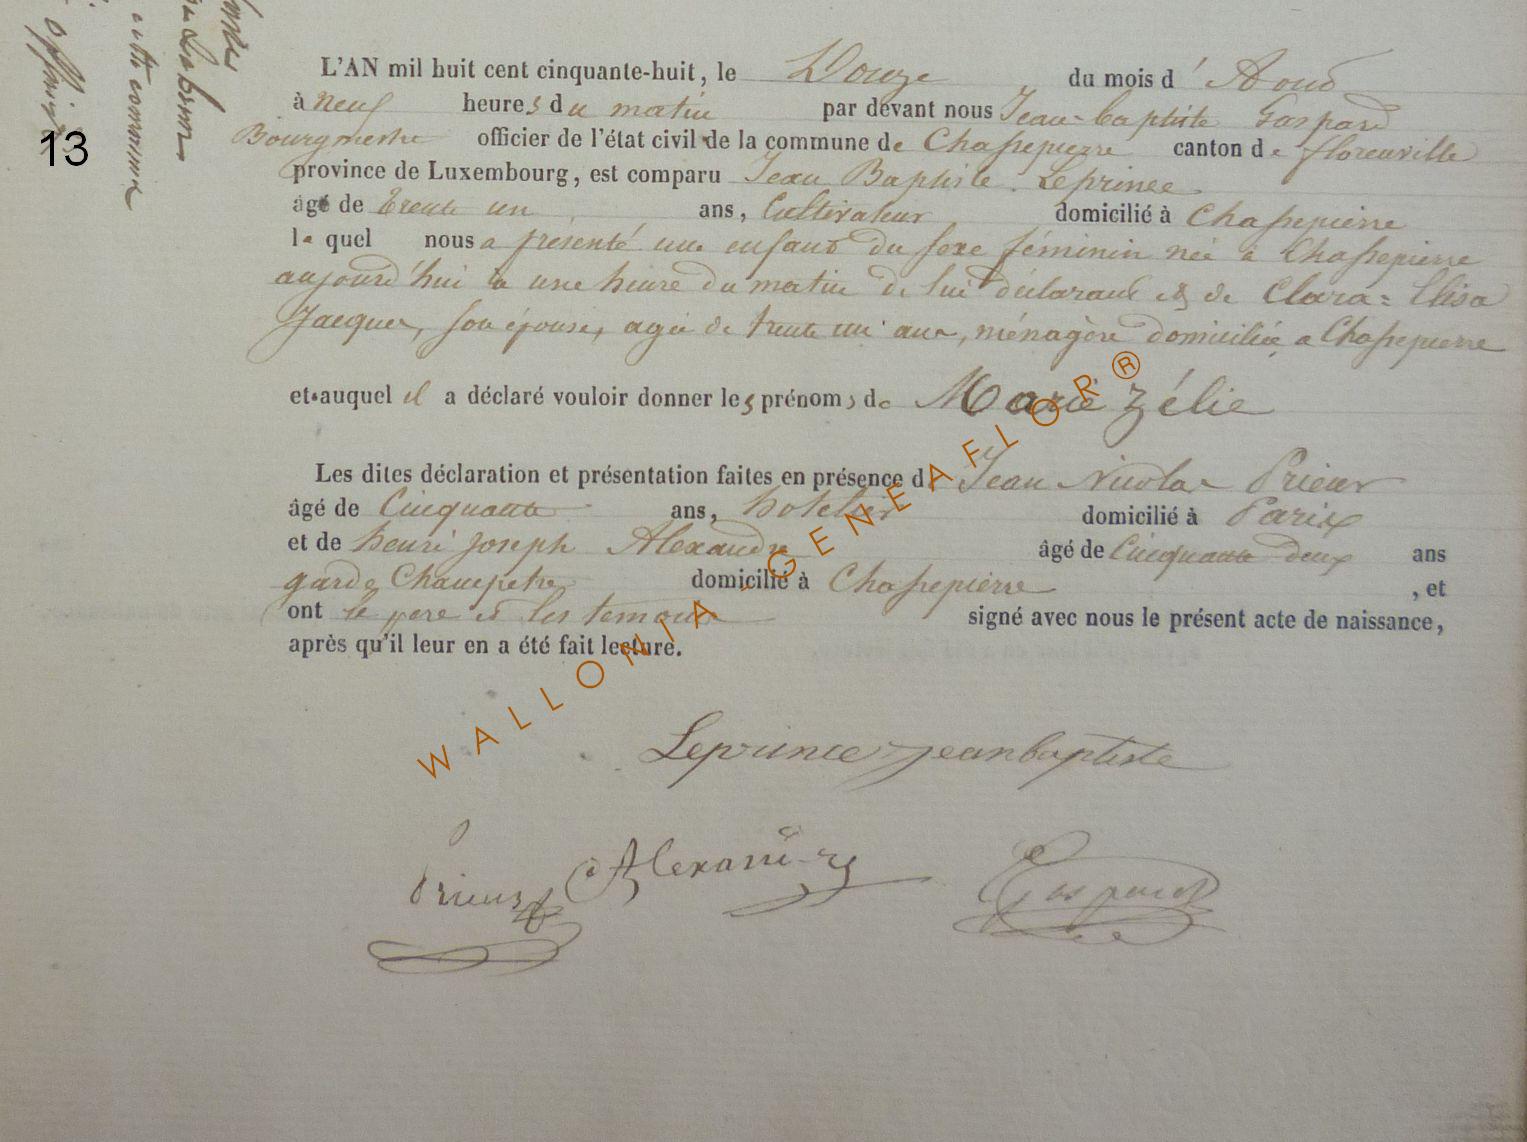 L'AN mil huit cent cinquante-huit, le Douze du mois d' Aout
à neuf heures du matin par devant nous Jean-baptiste Gaspard
Bourgmestre officier de l'état civil de la commune de Chassepierre canton de florenville
province de Luxembourg, est comparu Jean Baptiste Leprince
âgé de trente un ans, Cultivateur domicilié à Chassepierre
lequel nous a présenté un enfant du sexe féminin née à Chassepierre
aujourd'hui à une heure du matin de lui déclarant et de Clara = Elisa
Jacques, son épouse, agée de trente un ans, ménagère domiciliée a Chassepierre
et auquel il a déclaré vouloir donner les prénoms de Marie Zélie
Les dites déclaration et présentation faites en présence de Jean Nicolas Prieur
âgé de Cinquante ans, hotelier domicilié à Paris
et de henri joseph Alexandre âgé de Cinquante deux ans
garde Champetre domicilié à Chassepierre, et
ont le pere et les temoins signé avec nous le présent acte de naissance,
après qu'il leur en a été fait lecture.
Leprince jeanbaptiste
Prieur Alexandre Gaspard
13
cette commune
WALLONIA - GENEAFLOR®